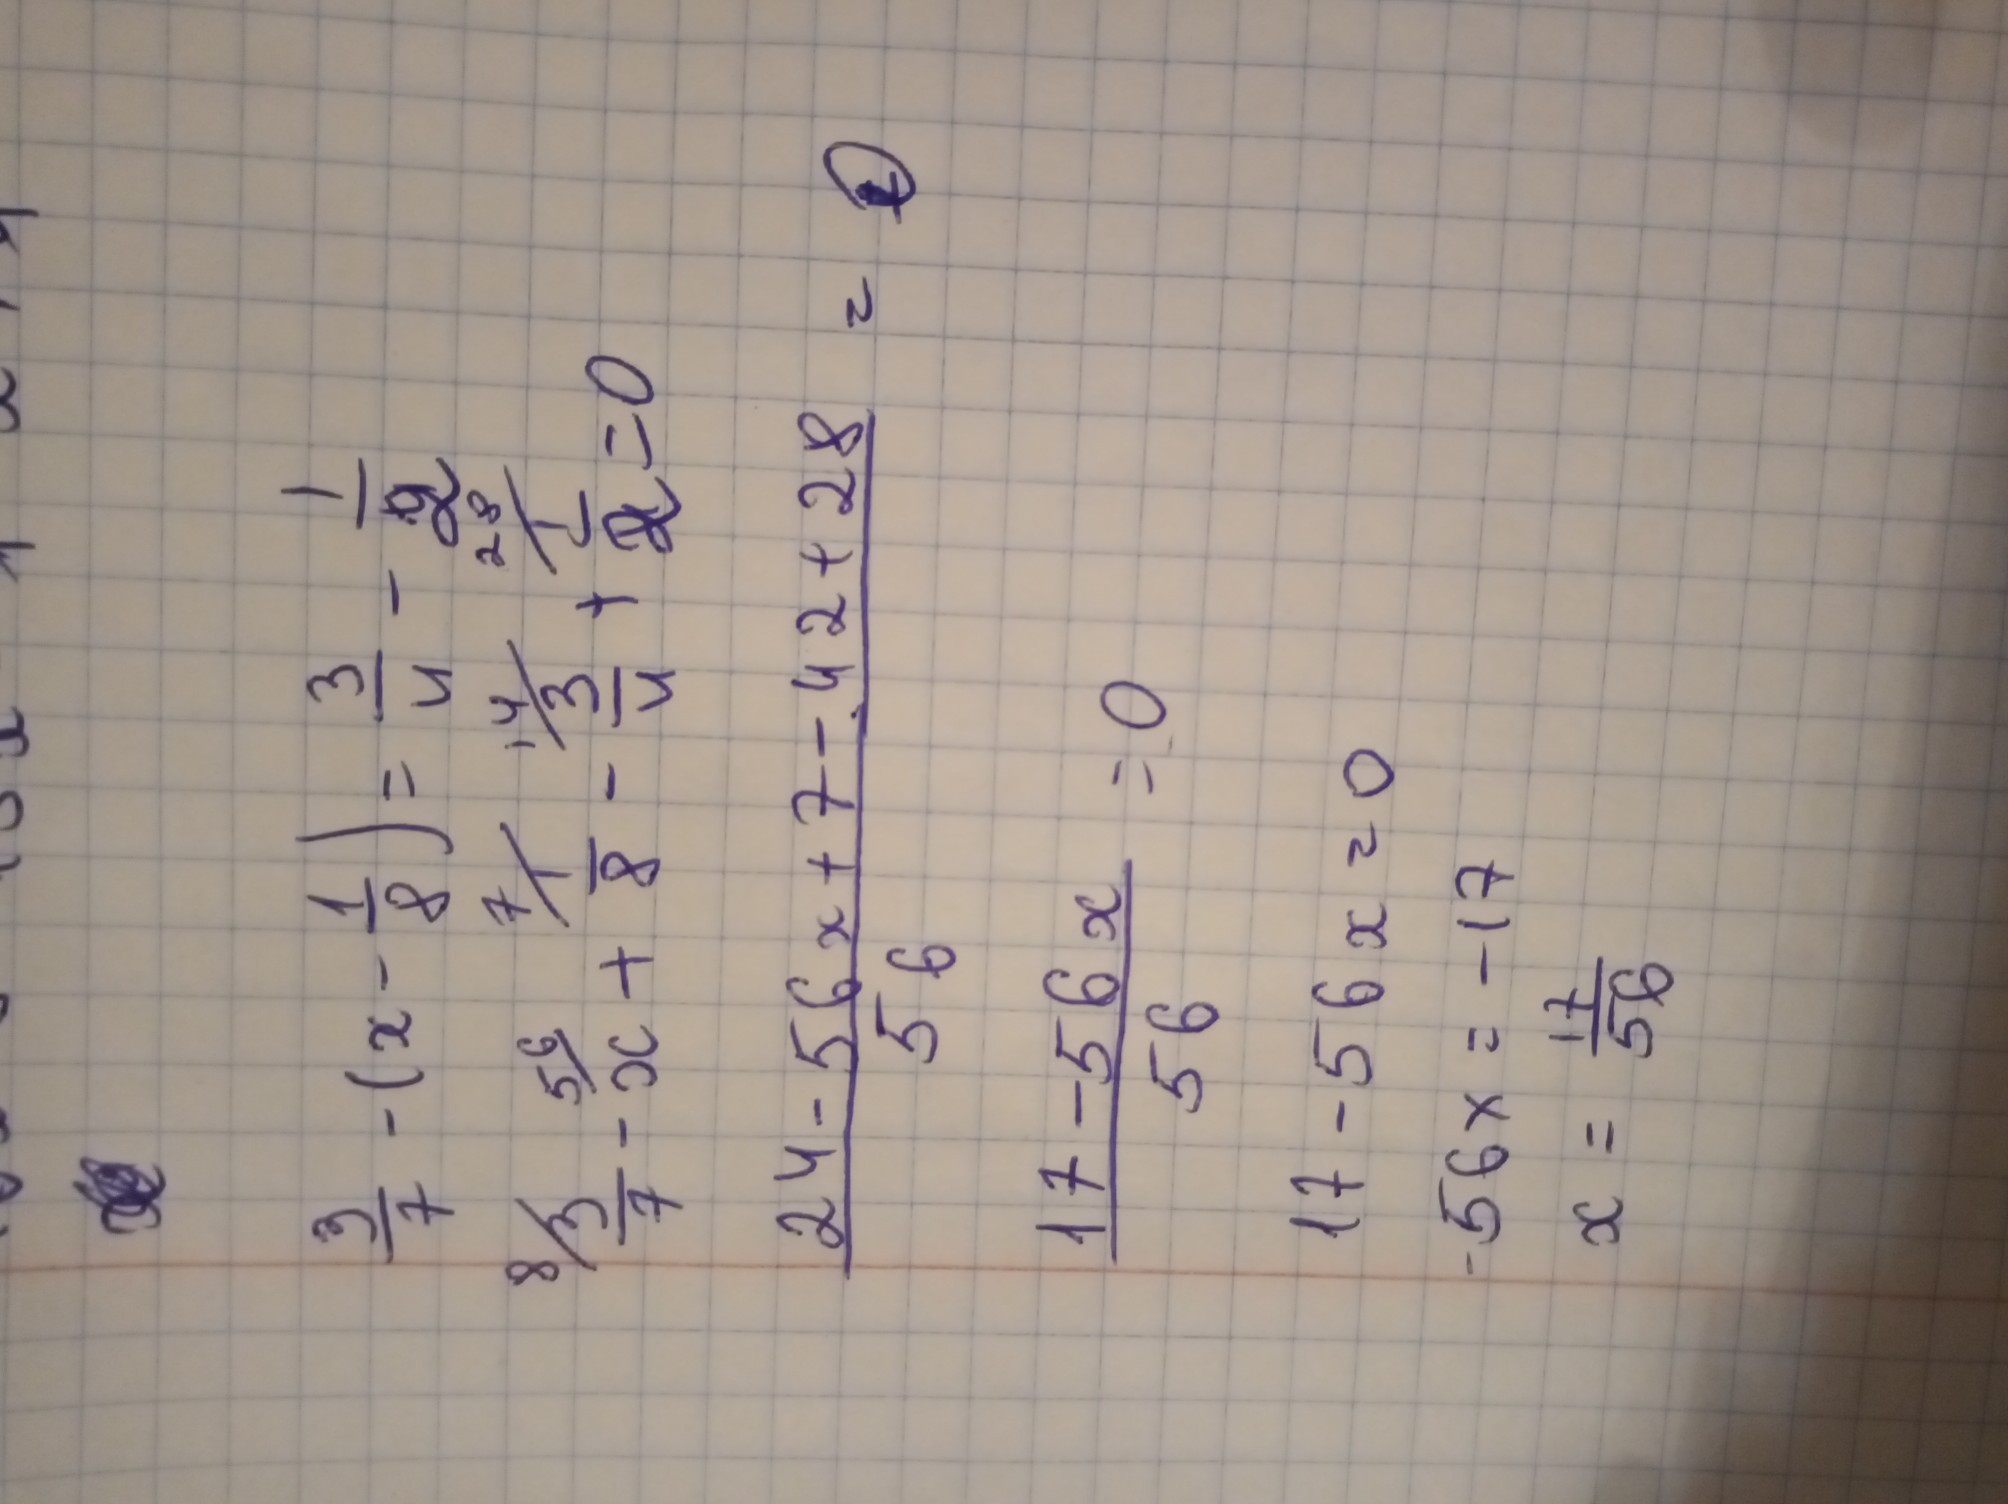 3/7 - (x - 1/8) = 3/4 - 1/2
8/ 3/7 - 56/ x + 7/ 1/8 - 14/ 3/4 + 28/ 1/2 = 0
24 - 56x + 7 - 42 + 28 / 56 =
17 - 56x / 56 = 0
17 - 56x = 0
-56x = -17
x = 17/56